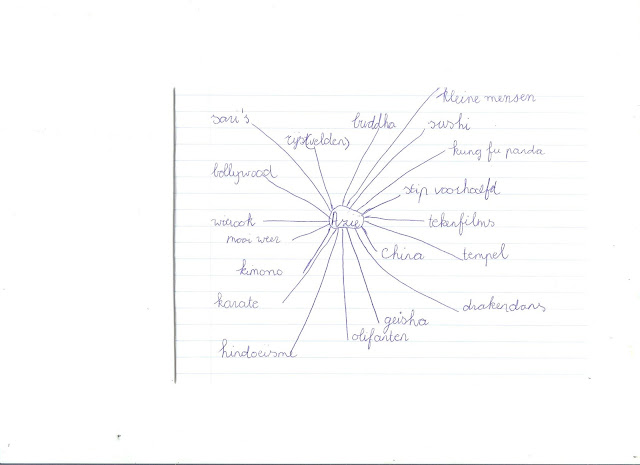 kleine mensen
sari's
buddha
sushi
rijst(velden)
kung fu panda
bollywood
stip voorhoofd
wierook
Azië
tekenfilms
mooi weer
China
tempel
kimono
karate
drakendans
geisha
olifanten
hindoeisme